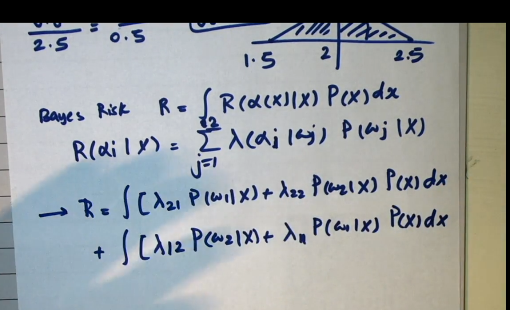 2.5 = 0.5
1.5 2 2.5
Bayes Risk R = ∫ R(α(x)|x) P(x) dx
R(αi | x) = Σ_{j=1}^{2} λ(αj | ωj) P(ωj | X)
→ R = ∫ [λ21 P(ω1|x) + λ22 P(ω2|x) P(x) dx
+ ∫ [λ12 P(ω2|x) + λ11 P(ω1|x) P(x) dx